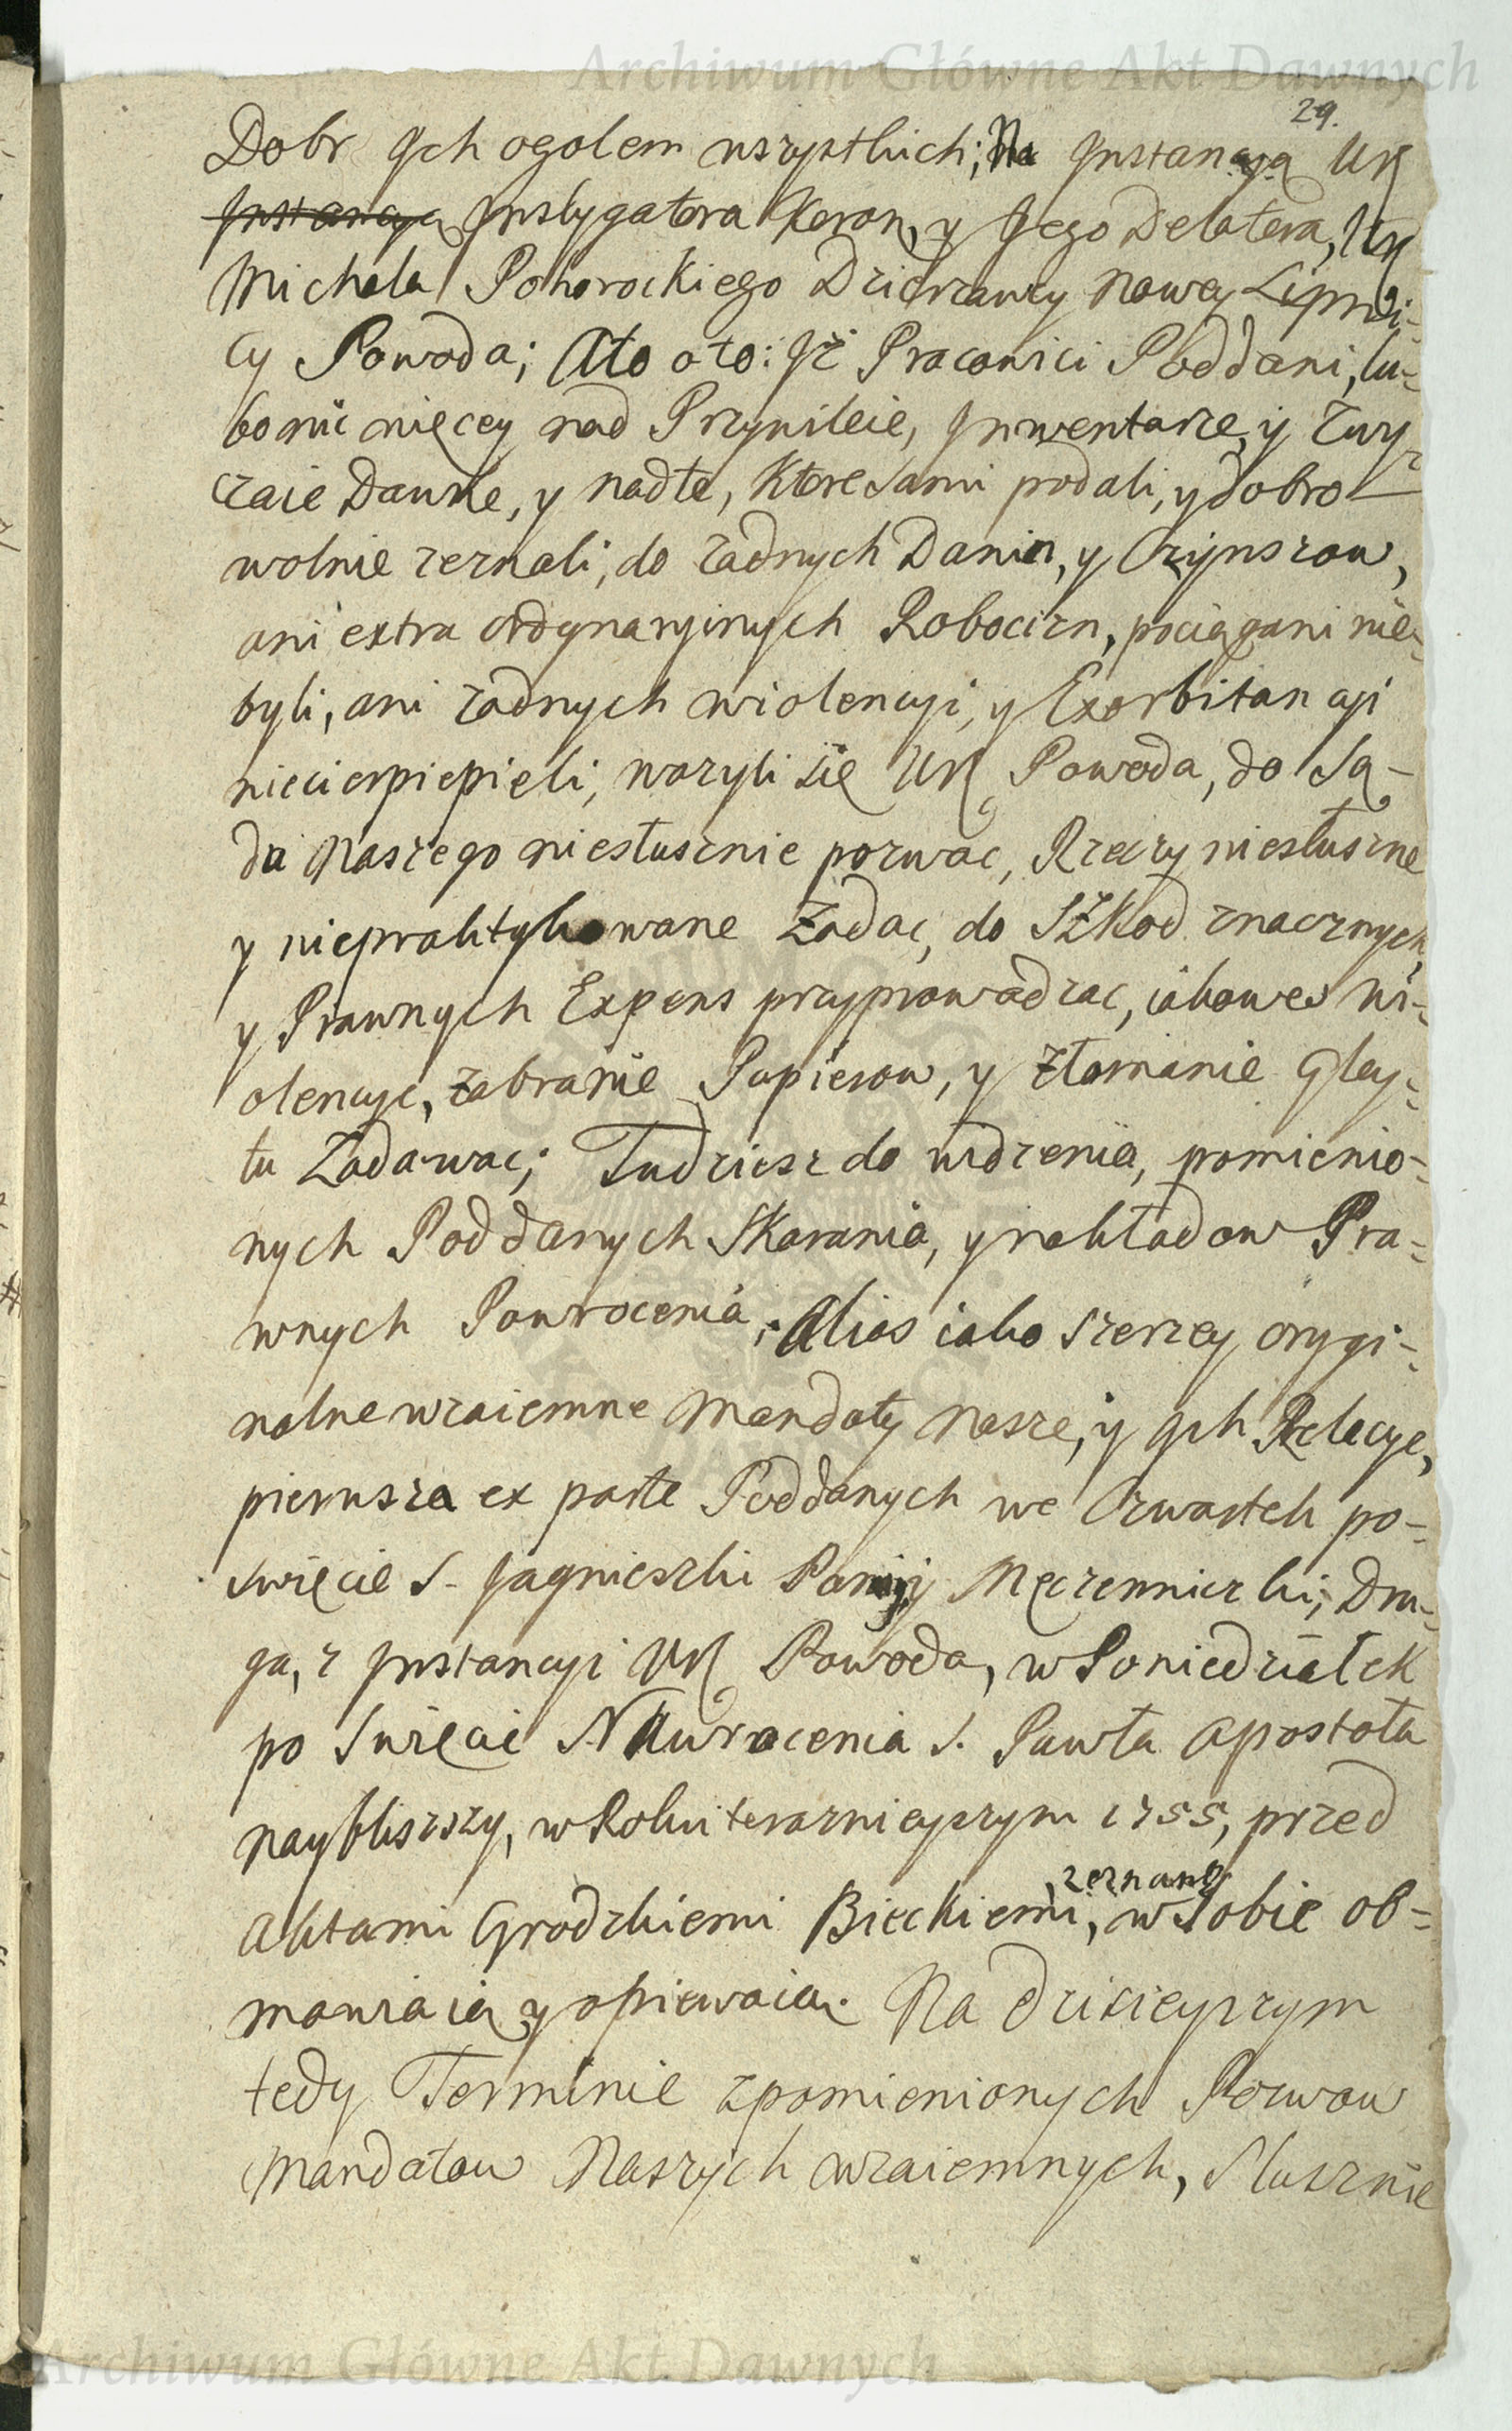 Archiwum Główne Akt Dawnych
29.
Dobr Ych ogolem wszystkich; Na Jnstancyą Ur
Jnstancyą Jnstygatora Koron, y Jego Delatora, Ur
Michała Pohorockiego Dzierzawcy Nowey Lipni-
cy Powoda; Ato oto: Jż Pracowici Poddani, lu-
bo nic więcey nad Przywileie, Jnwentarze, y Zwy
czaie Dawne, y nadto, Ktore sami podali, y dobro-
wolnie zeznali, do zadnych Danin, y Czynszow,
ani extra ordynaryinych Roboczizn, pociągani nie-
byli, ani zadnych wiolencyi, y Exorbitancyi
niecierpiepieli, wazyli się Ur Powoda, do Są-
du Naszego niesłusznie pozwac, Rzeczy niesłuszne
y niepraktykowane Zadac, do Szkod znacznych,
y Prawnych Expens przyprowadzac, iakowes wi-
olencye, zabranie Papierow, y złamanie Gley-
tu Zadawac; Tudziesz do widzenia, pomienio-
nych Poddanych Skarania, y nakładow Pra-
wnych Powrocenia; Alias iako szerzey orygi-
nalne wzaiemne Mandaty Nasze, y Ych Relacye,
pierwsza ex parte Poddanych we Czwartek po-
Swięcie S. Jagnieszki Panny Męczenniczki, Dru-
ga, z Jnstancyi Ur Powoda, w Poniedziałek
po Swięcie Nawrocenia S. Pawła Apostoła
naybliszszy, w Roku teraznieyszym 1755, przed
zeznane
Aktami Grodzkiemi Bieckiemi, w Sobie ob-
mawiaią y opiewaią. Na dzisieyszym
tedy Terminie zpomienionych Pozwow
Mandatow Naszych wzaiemnych, Słusznie
Archiwum Główne Akt Dawnych